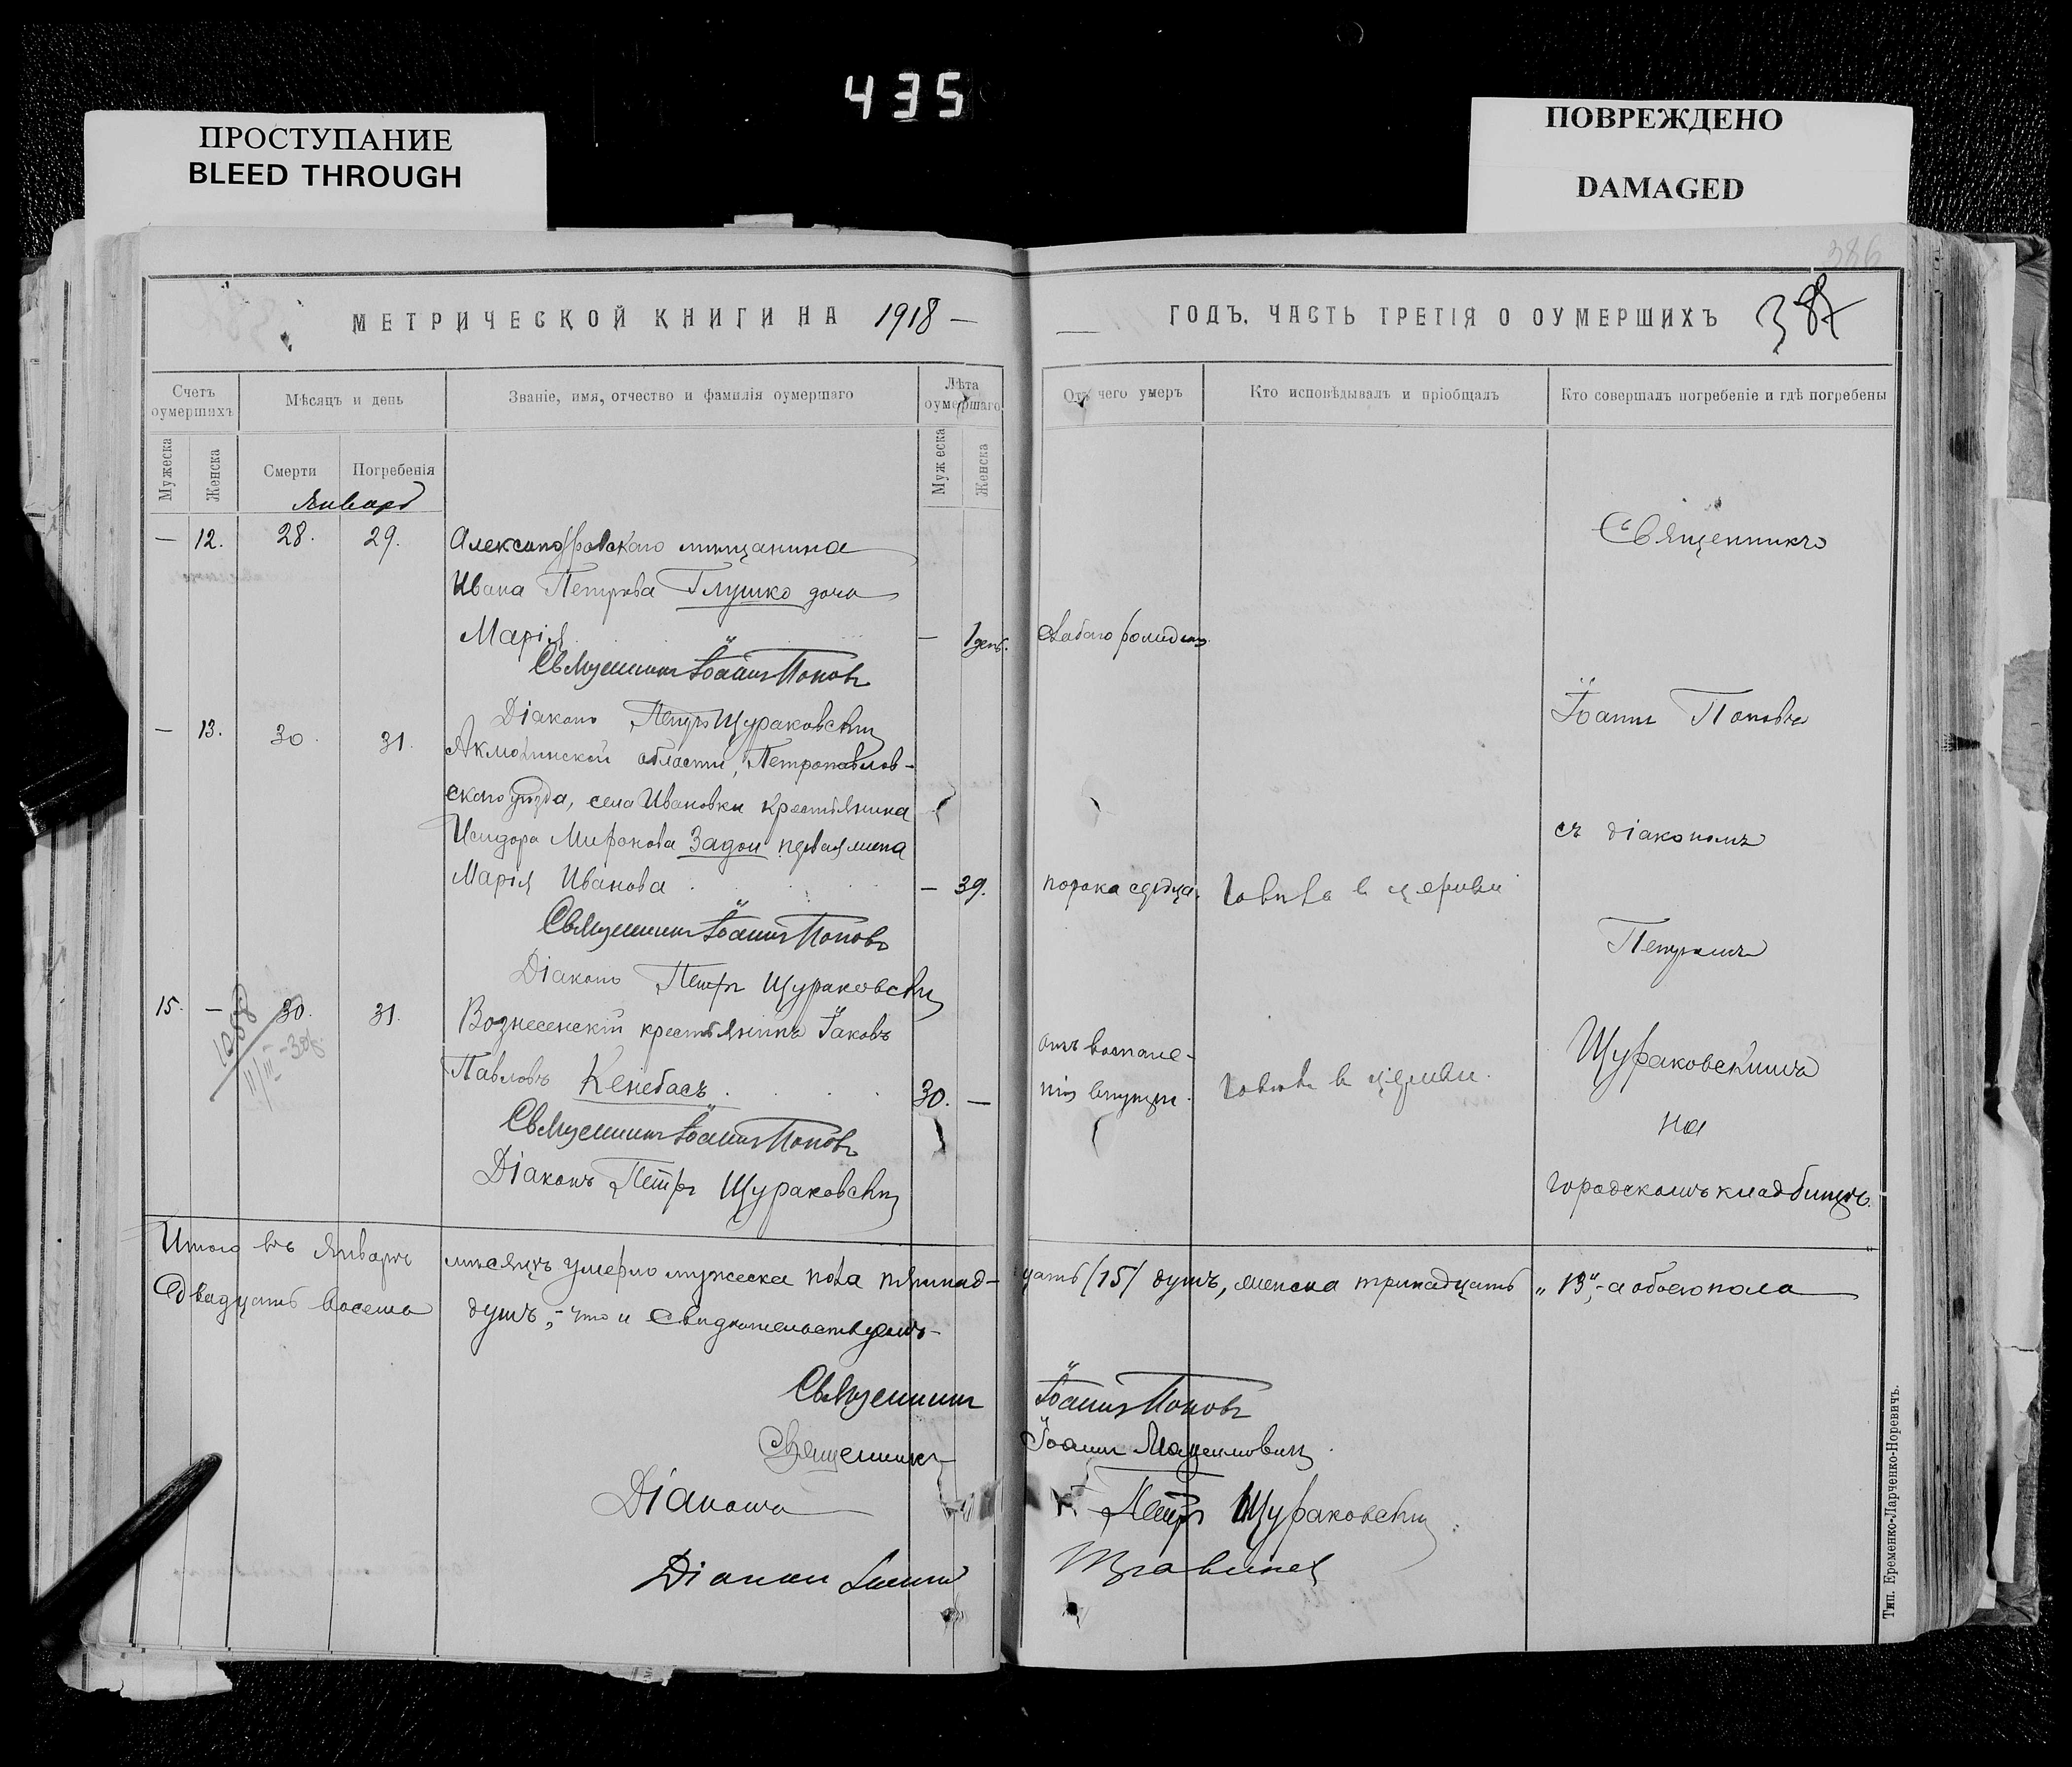 435
ПРОСТУПАНИЕ
BLEED THROUGH
ПОВРЕЖДЕНО
DAMAGED
386
МЕТРИЧЕСКОЙ КНИГИ НА 1918 —
— ГОДЪ. ЧАСТЬ ТРЕТІЯ О ОУМЕРШИХЪ 387
Счетъ оумершихъ
Мѣсяцъ и день
Званіе, имя, отчество и фамилія оумершаго
Лѣта оумершаго
Отъ чего умеръ
Кто исповѣдывалъ и пріобщалъ
Кто совершалъ погребеніе и гдѣ погребены
Мужеска
Женска
Смерти
Погребенія
Мужеска
Женска
Январь
— 12. 28. 29. Александровскаго мѣщанина
Ивана Петрова Глушко дочь
Марія — 1 день. Слабаго рожденія
Священникъ Іоаннъ Поповъ
Діаконъ Петръ Щураковскій
— 13. 30. 31. Акмолинской области, Петропавлов-
скаго уѣзда, села Ивановки крестьянина
Исидора Миронова Задои первая жена
Марія Иванова — 39. порока сердца. Говѣла в церкви
Священникъ Іоаннъ Поповъ
Діаконъ Петръ Щураковскій
15. — 30. 31. Вознесенскій крестьянинъ Іаковъ
Павловъ Кенебасъ 30. — отъ воспале-
нія Говѣлъ в церкви.
1208
11/III-30г.
Священникъ Іоаннъ Поповъ
Діаконъ Петръ Щураковскій
Священникъ
Іоаннъ Поповъ
съ діакономъ
Петромъ
Щураковскимъ
на
городскомъ кладбищѣ.
Итого въ Январѣ мѣсяцѣ умерло мужеска пола пятнад-цать /15/ душъ, женска тринадцать „13“,- а обоего пола
Двадцать восемь душъ,- что и свидѣтельствуемъ-
Священникъ Іоаннъ Поповъ
Священникъ Іоаннъ
Діаконъ Петръ Щураковскій
Діаконъ
Тип. Еременко-Ларченко-Норевичъ.